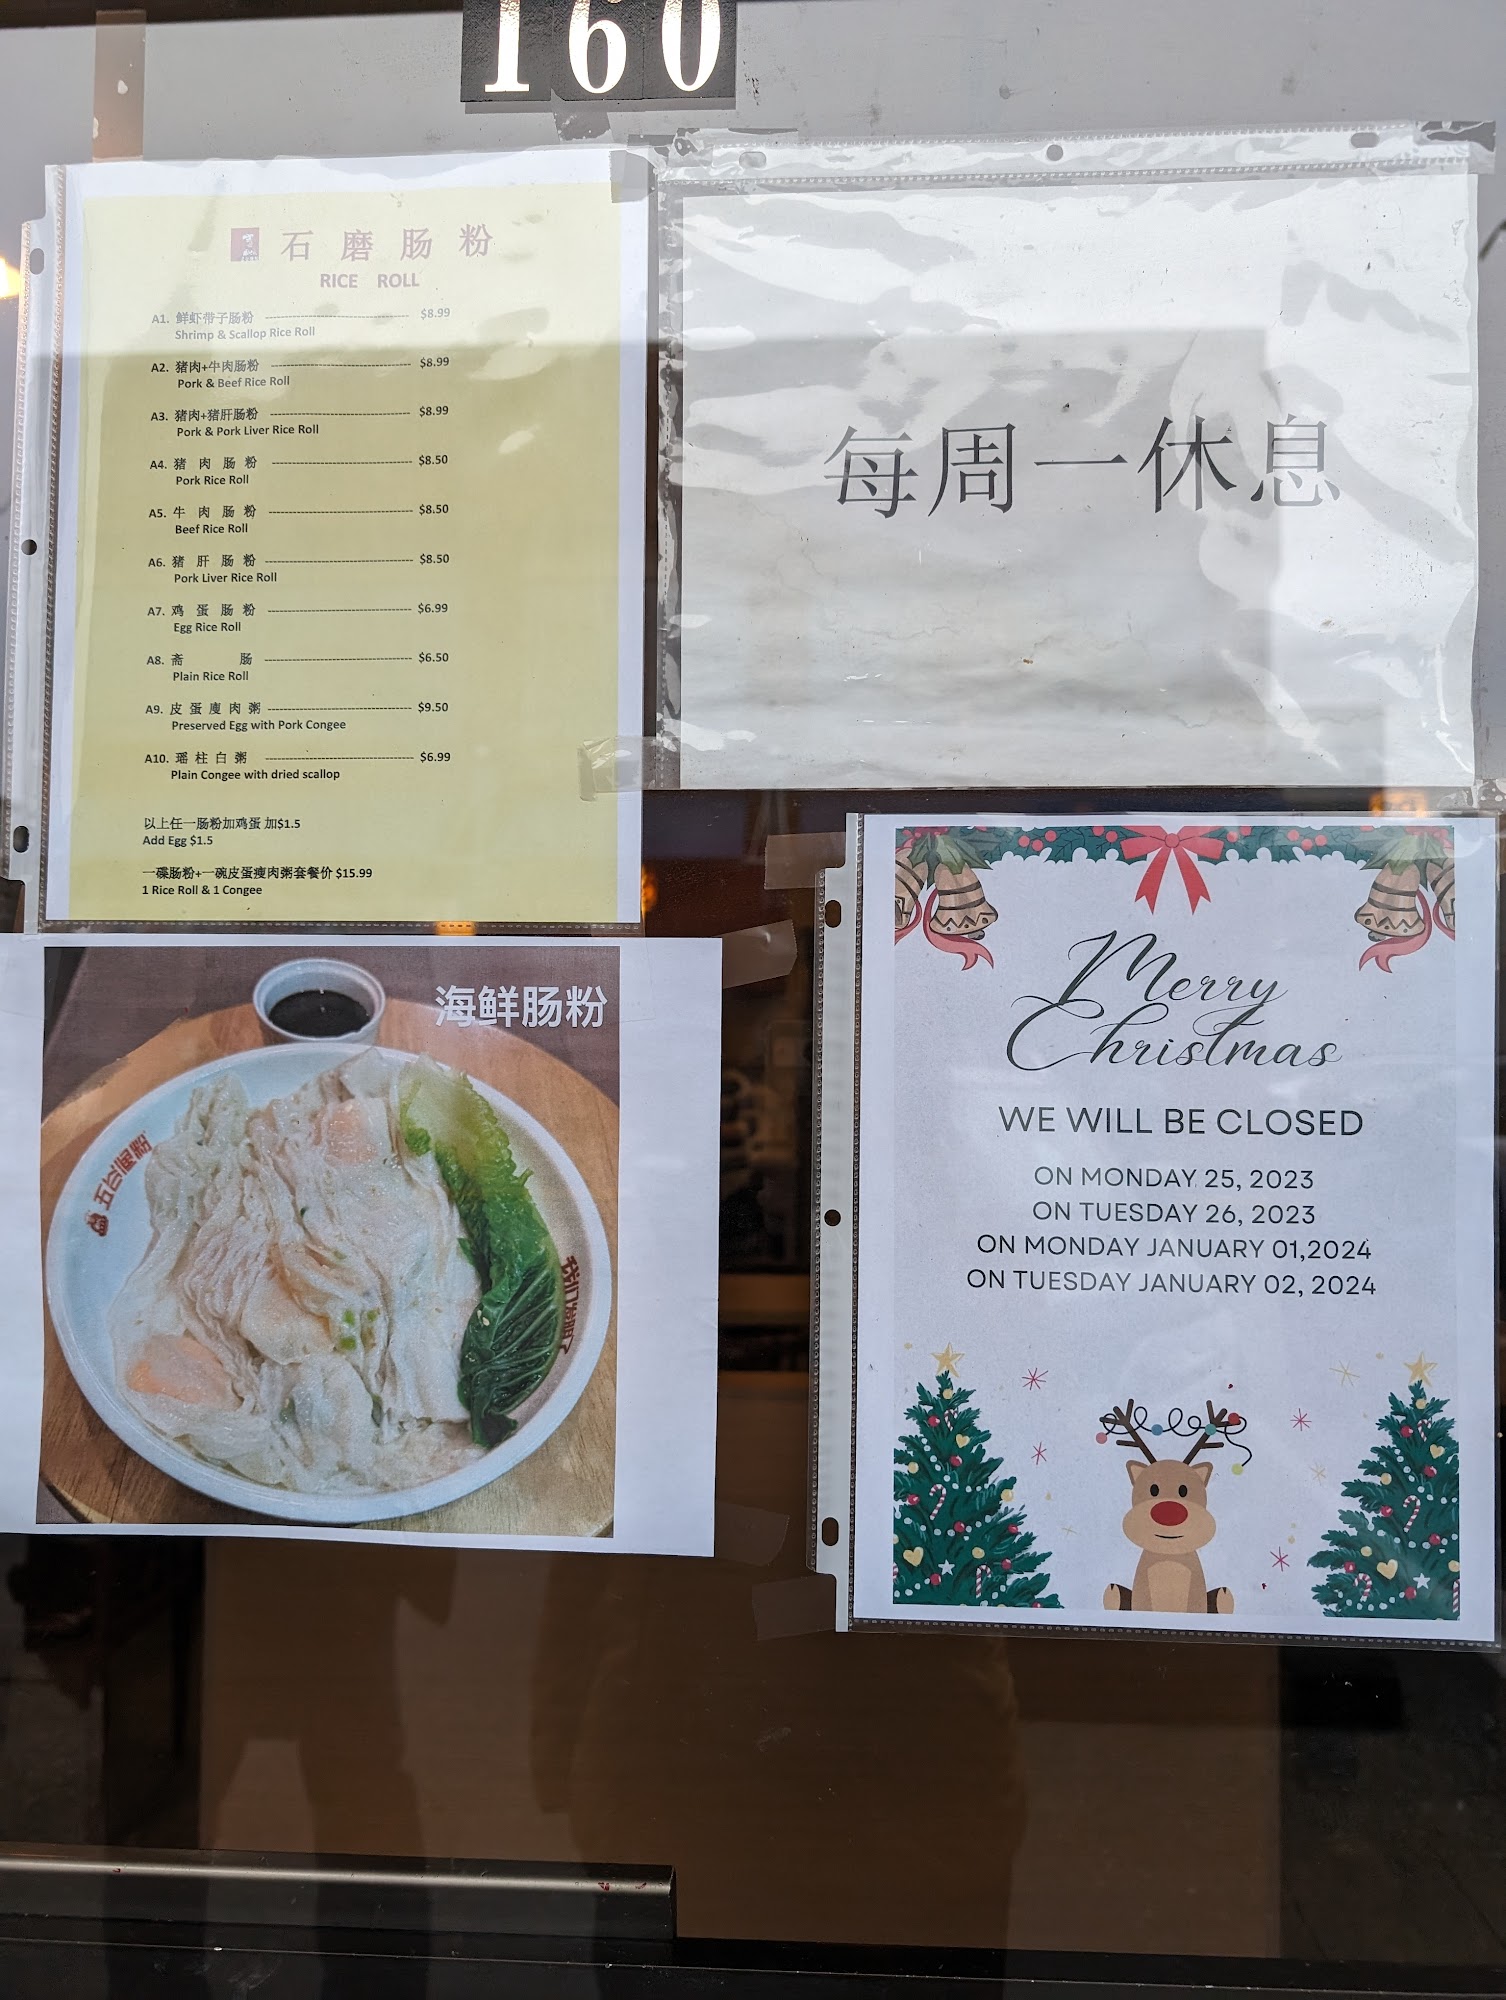 160
石磨肠粉
RICE ROLL
A1. 鲜虾带子肠粉 ---------------------------------- $8.99
Shrimp & Scallop Rice Roll
A2. 猪肉+牛肉肠粉 ---------------------------------- $8.99
Pork & Beef Rice Roll
A3. 猪肉+猪肝肠粉 ---------------------------------- $8.99
Pork & Pork Liver Rice Roll
A4. 猪肉肠粉 ---------------------------------- $8.50
Pork Rice Roll
A5. 牛肉肠粉 ---------------------------------- $8.50
Beef Rice Roll
A6. 猪肝肠粉 ---------------------------------- $8.50
Pork Liver Rice Roll
A7. 鸡蛋肠粉 ---------------------------------- $6.99
Egg Rice Roll
A8. 斋肠 ---------------------------------- $6.50
Plain Rice Roll
A9. 皮蛋廋肉粥 ---------------------------------- $9.50
Preserved Egg with Pork Congee
A10. 瑶柱白粥 ---------------------------------- $6.99
Plain Congee with dried scallop
以上任一肠粉加鸡蛋 加$1.5
Add Egg $1.5
一碟肠粉+一碗皮蛋瘦肉粥套餐价 $15.99
1 Rice Roll & 1 Congee
每周一休息
海鲜肠粉
Merry
Christmas
WE WILL BE CLOSED
ON MONDAY 25, 2023
ON TUESDAY 26, 2023
ON MONDAY JANUARY 01,2024
ON TUESDAY JANUARY 02, 2024